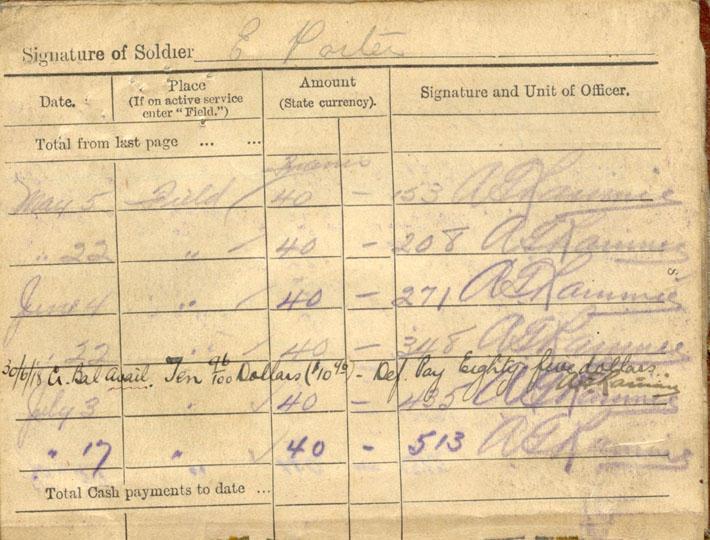 Signature of Soldier E Porter
Date. Place (If on active service enter "Field.") Amount (State currency). Signature and Unit of Officer.
Total from last page ... ...
Francs
May 5 Field 40 — 153
" 22 " 40 — 208
June 4 " 40 — 271
" 22 " 40 — 348
30/6/18 Cr. Bal Avail. Ten 96/100 Dollars ($10 96) - Def. Pay Eighty five dollars.
July 3 " 40 — 435
" 17 " 40 — 513
Total Cash payments to date ...